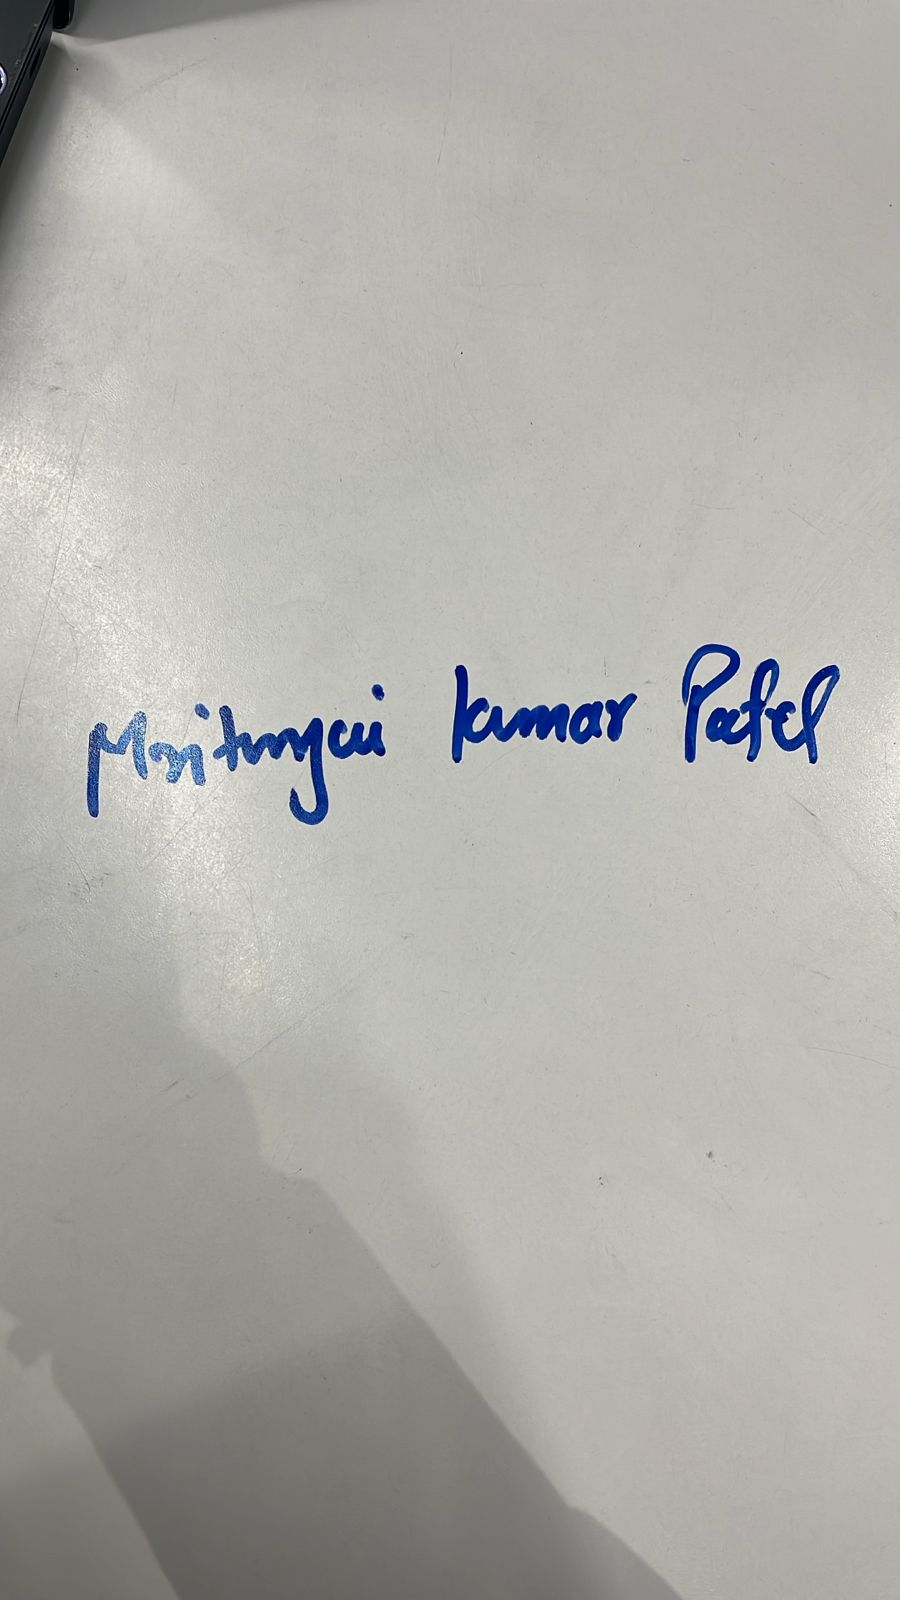 Mritunjai kumar Patel